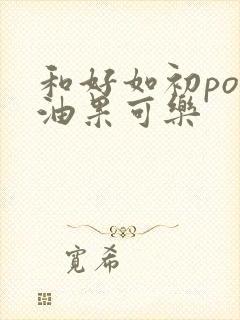 和好如初po
油果可樂
寬希